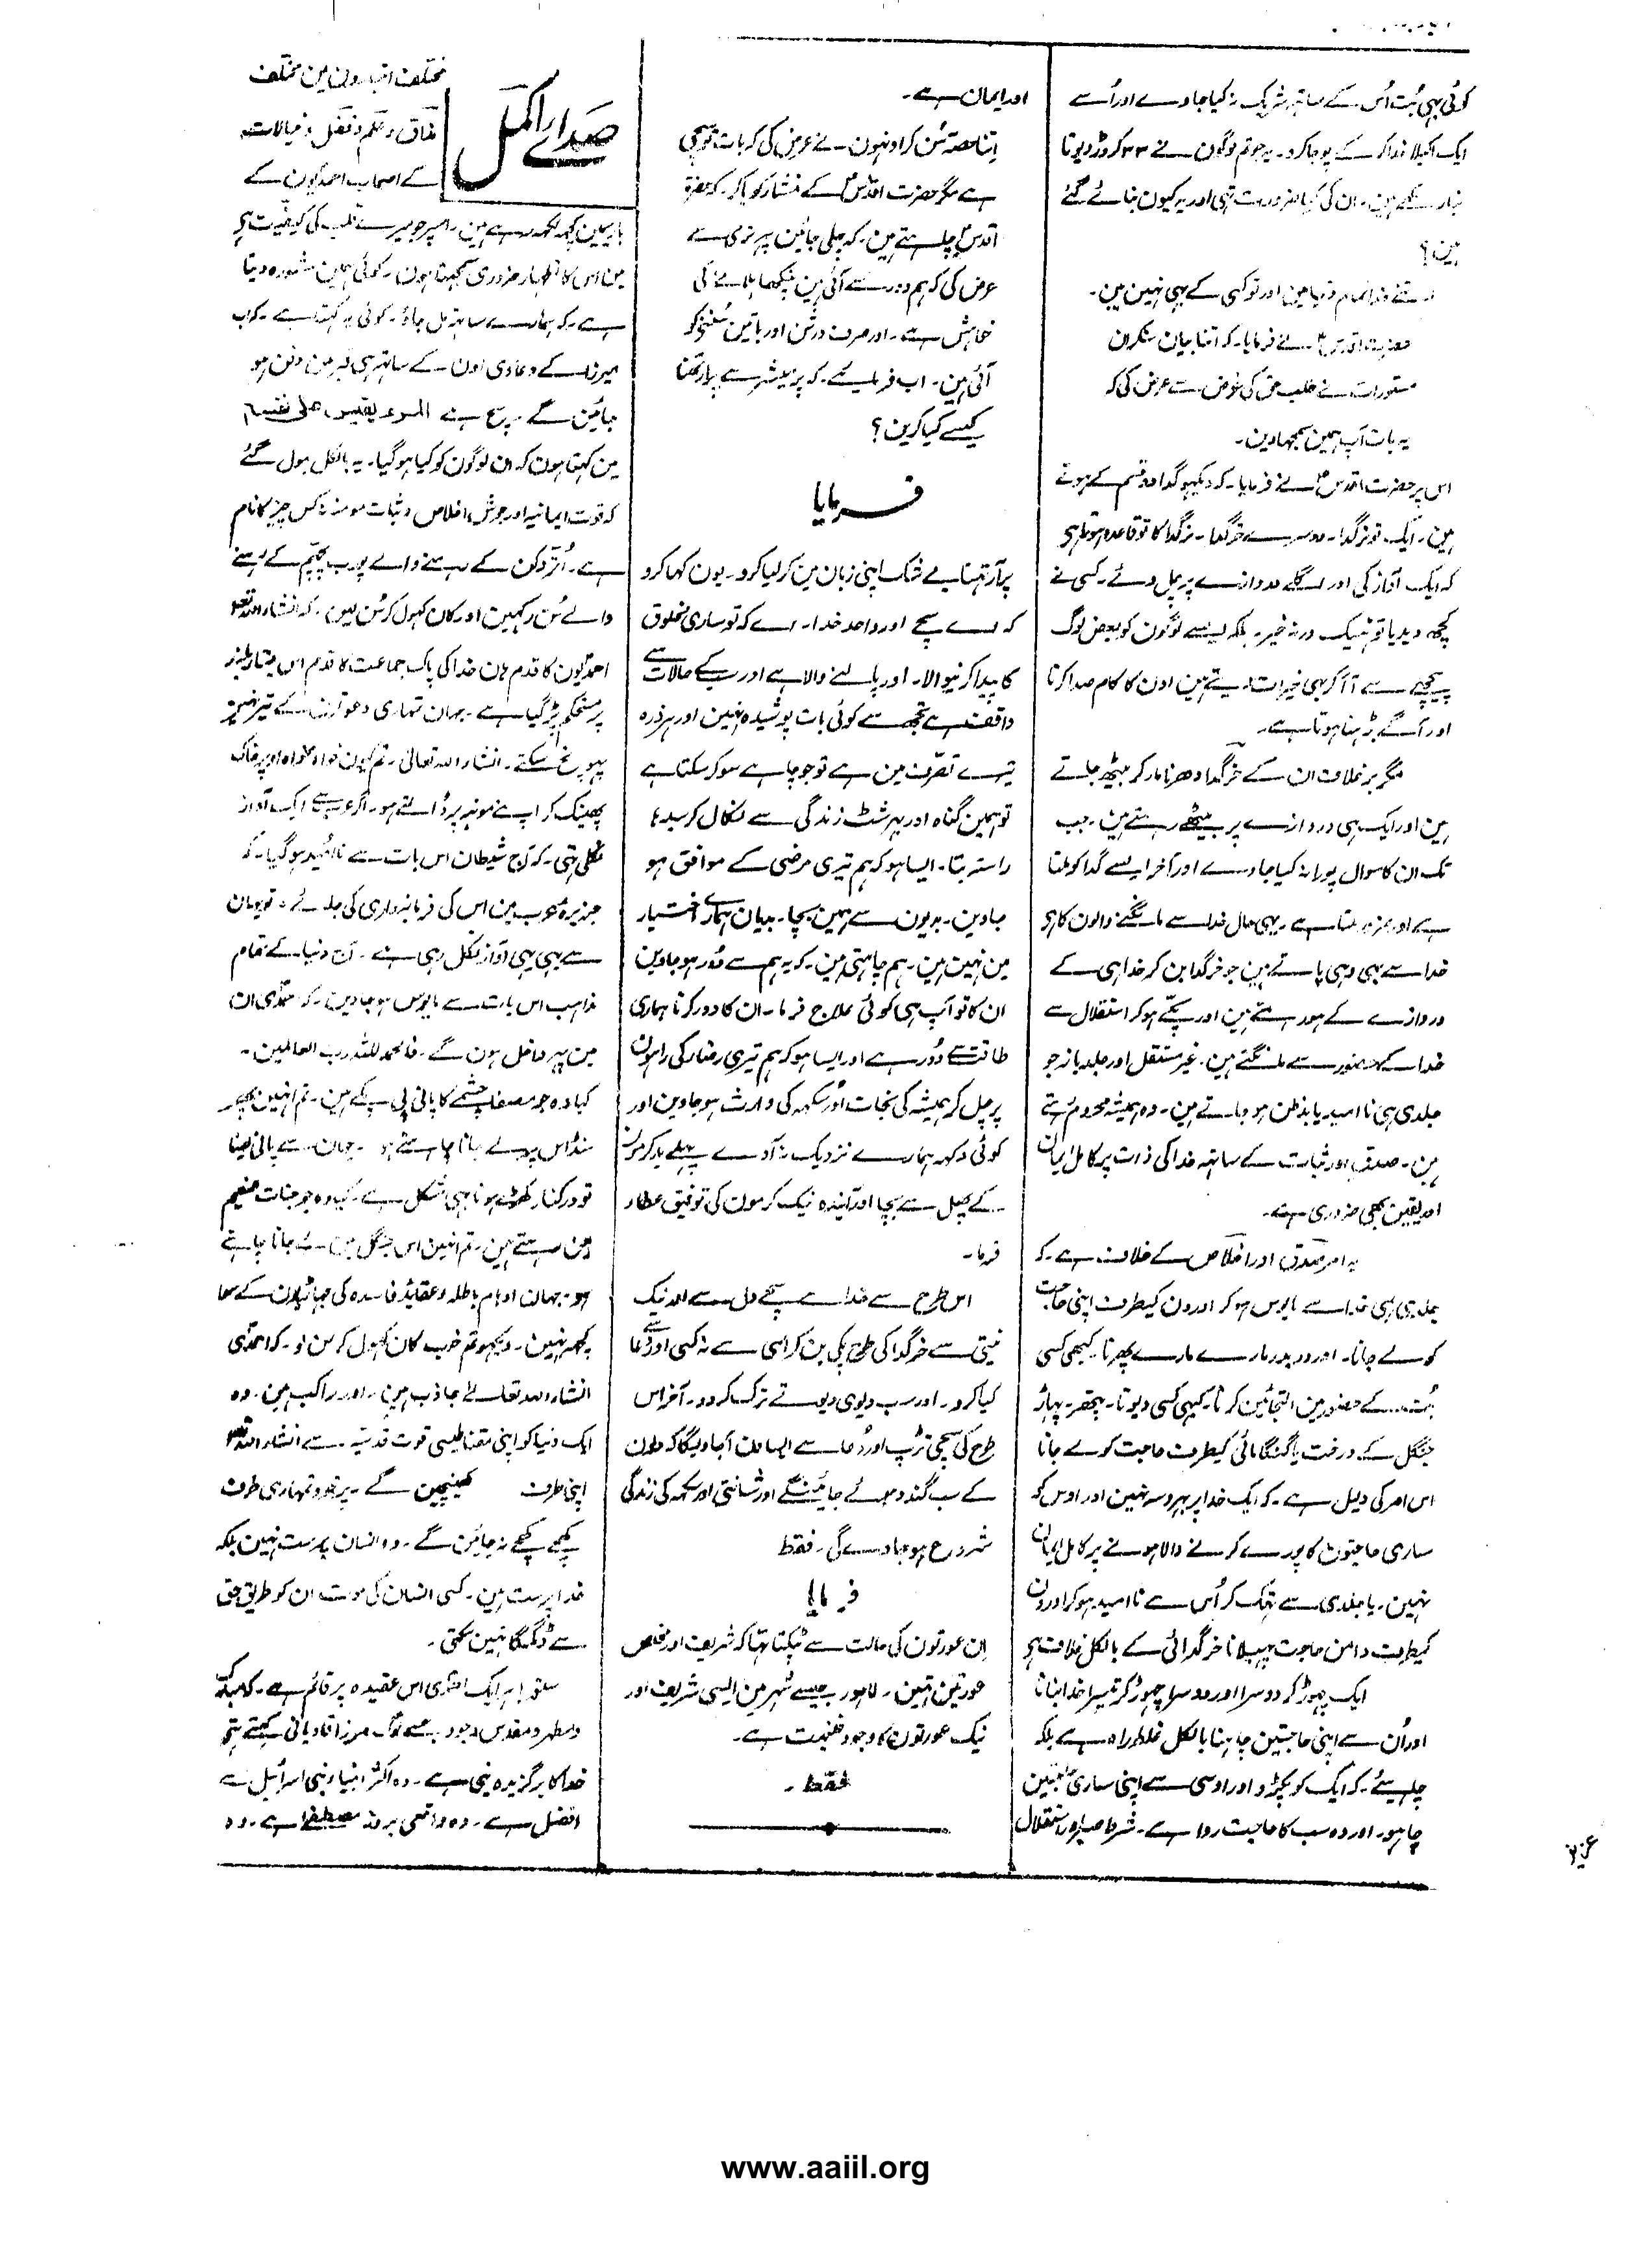 کوئی بھی بُت اُس کے ساتھ شریک نہ کیا جاوے اور اُسے
ایک اکیلا خدا کر کے پوجا کرو۔ یہ جو تم لوگون نے ۳۳ کروڑ دیوتا
بنا رکھے ہین۔ ان کی کیا ضرورت تہی اور یہ کیون بنائے گئے
ہین؟
اتنے خدا تمام دنیا مین اور تو کسی کے بھی نہین ہین۔
حضرت اقدس نے فرمایا۔ کہ اتنا بیان سنکر ان
مستورات نے طلب حق کی غرض سے عرض کی کہ
یہ بات آپ ہمین سمجھا دین۔
اس پر حضرت اقدس نے فرمایا۔ کہ دیکھو گدا دو قسم کے ہوتے
ہین۔ ایک تو نر گدا۔ دوسرے خر گدا۔ نر گدا کا تو قاعدہ ہوتا ہی
کہ ایک آواز کی اور اگلے دروازے پر چل دئے۔ کسی نے
کچھ دیدیا تو ٹھیک ورنہ خیر۔ بلکہ ایسے لوگون کو بعض لوگ
پیچھے سے آ آ کر بھی خیرات دیتے ہین اون کا کام صدا کرنا
اور آگے بڑہنا ہوتا ہے۔
مگر بر خلاف ان کے خر گدا دھرنا مار کر بیٹھ جاتے
ہین اور ایک ہی دروازے پر بیٹھے رہتے ہین۔ جب
تک ان کا سوال پورا نہ کیا جاوے اور آخر ایسے گدا کو ملتا
ہے اور ضرور ملتا ہے۔ یہی حال خدا سے مانگنے والون کا ہی
خدا سے بہی وہی پاتے ہین جو خر گدا بن کر خدا ہی کے
دروازے کے ہو رہتے ہین اور پکے ہو کر استقلال سے
خدا کے حضور سے مانگتے ہین۔ غیر مستقل اور جلد باز جو
جلدی ہی نا امید یا بدظن ہو جاتے ہین۔ وہ ہمیشہ محروم رہتے
ہین۔ صدق اور ثبات کے ساتھ خدا کی ذات پر کامل ایمان
اور یقین بھی ضروری ہے۔
یہ امر صدق اور اخلاص کے خلاف ہے۔ کہ
جلدی ہی خدا سے مایوس ہو کر اورون کیطرف اپنی حاجت
کو لے جانا۔ اور در بدر مارے مارے پھرنا۔ کبھی کسی
بُت کے حضور مین التجائین کرنا۔ کبھی کسی دیوتا۔ پتھر۔ پہاڑ
جنگل کے درخت یا گنگا مائی کیطرف حاجت کو لے جانا
اس امر کی دلیل ہے۔ کہ ایک خدا پر بھروسہ نہین اور اوس کو
ساری حاجتون کا پورے کرنے والا ہونے پر کامل ایمان
نہین۔ یا جلدی سے تھک کر اُس سے نا امید ہو کر اورون
کیطرف دامن حاجت پھیلانا خر گدائی کے بالکل خلاف ہی
ایک چھوڑ کر دوسرا اور دوسرا چھوڑ کر تیسرا خدا بنانا
اور اُن سے اپنی حاجتین چاہنا بالکل غلط راہ ہے بلکہ
چاہیئے۔ کہ ایک کو پکڑو اور اوسی سے اپنی ساری حاجتین
چاہو۔ اور وہ سب کا حاجت روا ہے۔ شرط صبر اور استقلال
اور ایمان ہے۔
اتنا حصہ سُن کر اونہون نے عرض کی کہ بات تو سچی
ہے مگر حضرت اقدس کے منشا کو پا کر۔ کہ حضرت
اقدس چاہتے ہین۔ کہ چلی جائین پھر نرمی سے
عرض کی کہ ہم دور سے آئی ہین پنکھا ہلانے کی
خواہش ہے۔ اور صرف درشن اور باتین سننے کو
آئی ہین۔ اب فرمایئے۔ کہ پرمیشر سے پرارتھنا
کیسے کیا کرین؟
فرمایا
پرارتھنا بے شک اپنی زبان مین کر لیا کرو۔ یون کہا کرو
کہ اے سچے اور واحد خدا۔ اے کہ تو ساری مخلوق
کا پیدا کرنیوالا۔ اور پالنے والا ہے اور سب کے حالات سے
واقف ہے تجھ سے کوئی بات پوشیدہ نہین اور ہر ذرہ
تیرے تصرف مین ہے تو جو چاہے سو کر سکتا ہے
تو ہمین گناہ اور بھرشٹ زندگی سے نکال کر سیدھا
راستہ بتا۔ ایسا ہو کہ ہم تیری مرضی کے موافق ہو
جاوین۔ بدیون سے ہمین بچا۔ بدیان ہمارے اختیار
مین نہین ہین۔ ہم چاہتی ہین۔ کہ یہ ہم سے دور ہو جاوین
ان کا تو آپ ہی کوئی علاج فرما۔ ان کا دور کرنا ہماری
طاقت سے دُور ہے اور ایسا ہو کہ ہم تیری رضا کی راہون
پر چل کر ہمیشہ کی نجات اور سُکھ کی وارث ہو جاوین اور
کوئی دکھ ہمارے نزدیک نہ آوے پہلے بد کرمون
کے پھل سے بچا اور آیندہ نیک کرمون کی توفیق عطا
فرما۔
اس طرح سے خدا سے سچے دل سے اور نیک
نیتی سے خر گدا کی طرح پکی بن کر اسی سے نہ کسی اور سے دُعا
کیا کرو۔ اور سب دیوی دیوتے ترک کر دو۔ آخر اس
طرح کی سچی تڑپ اور دُعا سے ایسا دن آجاویگا کہ دلون
کے سب گند دھوئے جائینگے اور شانتی اور سکھ کی زندگی
شروع ہو جاوے گی۔ فقط
فرمایا
اِن عورتون کی حالت سے ٹپکتا تھا کہ شریف اور مخلص
عورتین تھین۔ لاہور جیسے شہر مین ایسی شریف اور
نیک عورتون کا وجود غنیمت ہے۔
فقط۔
صدائے اکمل
مختلف اخبارون مین مختلف
مذاق و علم و فضل و خیالات
کے اصحاب احمدیون کے
بارہ مین کچھ لکھ رہے ہین۔ اسپر جو میرے قلب کی کیفیت ہی
مین اس کا اظہار ضروری سمجہتا ہون۔ کوئی ہمین مشورہ دیتا
ہے۔ کہ ہمارے ساتھ مل جاؤ۔ کوئی یہ کہتا ہے۔ کہ اب
میرزا کے دعاوی اون کے ساتھ ہی قبر مین دفن ہو
جائین گے۔ سچ ہے المرء یقیس علی نفسہ
مین کہتا ہون کہ ان لوگون کو کیا ہو گیا۔ یہ بالکل بھول گئے
کہ قوت ایمانیہ اور جوش اخلاص و ثبات مومنہ کس چیز کا نام
ہے۔ اُتر دکن کے رہنے والے پورب پچھم کے رہنے
والے سُن رکھین اور کان کھول کر سُن لین۔ کہ انشاء اللہ تعالیٰ
احمدیون کا قدم ہان خدا کی پاک جماعت کا قدم اس مینار بلند
پر مستحکم پڑ گیا ہے۔ جہان تمہاری دعوتون کے تیر نہین
پہونچ سکتے۔ انشاء اللہ تعالیٰ۔ تم کیون خواہ مخواہ اوپر خاک
پھینک کر اپنے مونہہ پر ڈالتے ہو۔ اگر عرب سے ایک آواز
نکلی تہی۔ کہ آج شیطان اس بات سے نا امید ہو گیا۔ کہ
جزیرہ عرب مین اس کی فرمانبرداری کی جائے۔ تو یہان
سے بھی یہی آواز نکل رہی ہے۔ آج دنیا کے تمام
مذاہب اس بات سے مایوس ہو جاوین۔ کہ احمدی ان
مین پھر داخل ہون گے۔ فالحمد للہ رب العالمین۔
کیا وہ جو مصفا چشمے کا پانی پی چکے ہین۔ تم انہین پھر
سنڈاس پر لے جانا چاہتے ہو۔ جہان سے پانی پینا
تو درکنار کھڑے ہونا بھی مشکل ہے۔ کیا وہ جو جنات نعیم
مین رہتے ہین۔ تم انہین اس جنگل مین لے جانا چاہتے
ہو۔ جہان اوہام باطلہ و عقاید فاسدہ کی جھاڑیون کے سوا
کچھ نہین۔ دیکھو تم خوب کان کھول کر سن لو۔ کہ احمدی
انشاء اللہ تعالےٰ جاذب ہین۔ اور راکب ہین۔ وہ
ایک دنیا کو اپنی مقناطیسی قوت قدسیہ سے انشاء اللہ
اپنی طرف کھینچین گے۔ پر خود تمہاری طرف
کھچے کھچے نہ جائین گے۔ وہ انسان پرست نہین بلکہ
خدا پرست ہین۔ کسی انسان کی موت ان کو طریق حق
سے ڈگمگا نہین سکتی۔
سنو! ہر ایک احمدی اس عقیدہ پر قائم ہے۔ کہ
و مطہر و مقدس وجود جسے لوگ مرزا قادیانی کہتے تھے
خدا کا برگزیدہ نبی ہے۔ وہ اکثر انبیاء بنی اسرائیل سے
افضل ہے۔ وہ واقعی بروز مصطفےٰ ہے۔ وہ
عزیز
www.aaiil.org